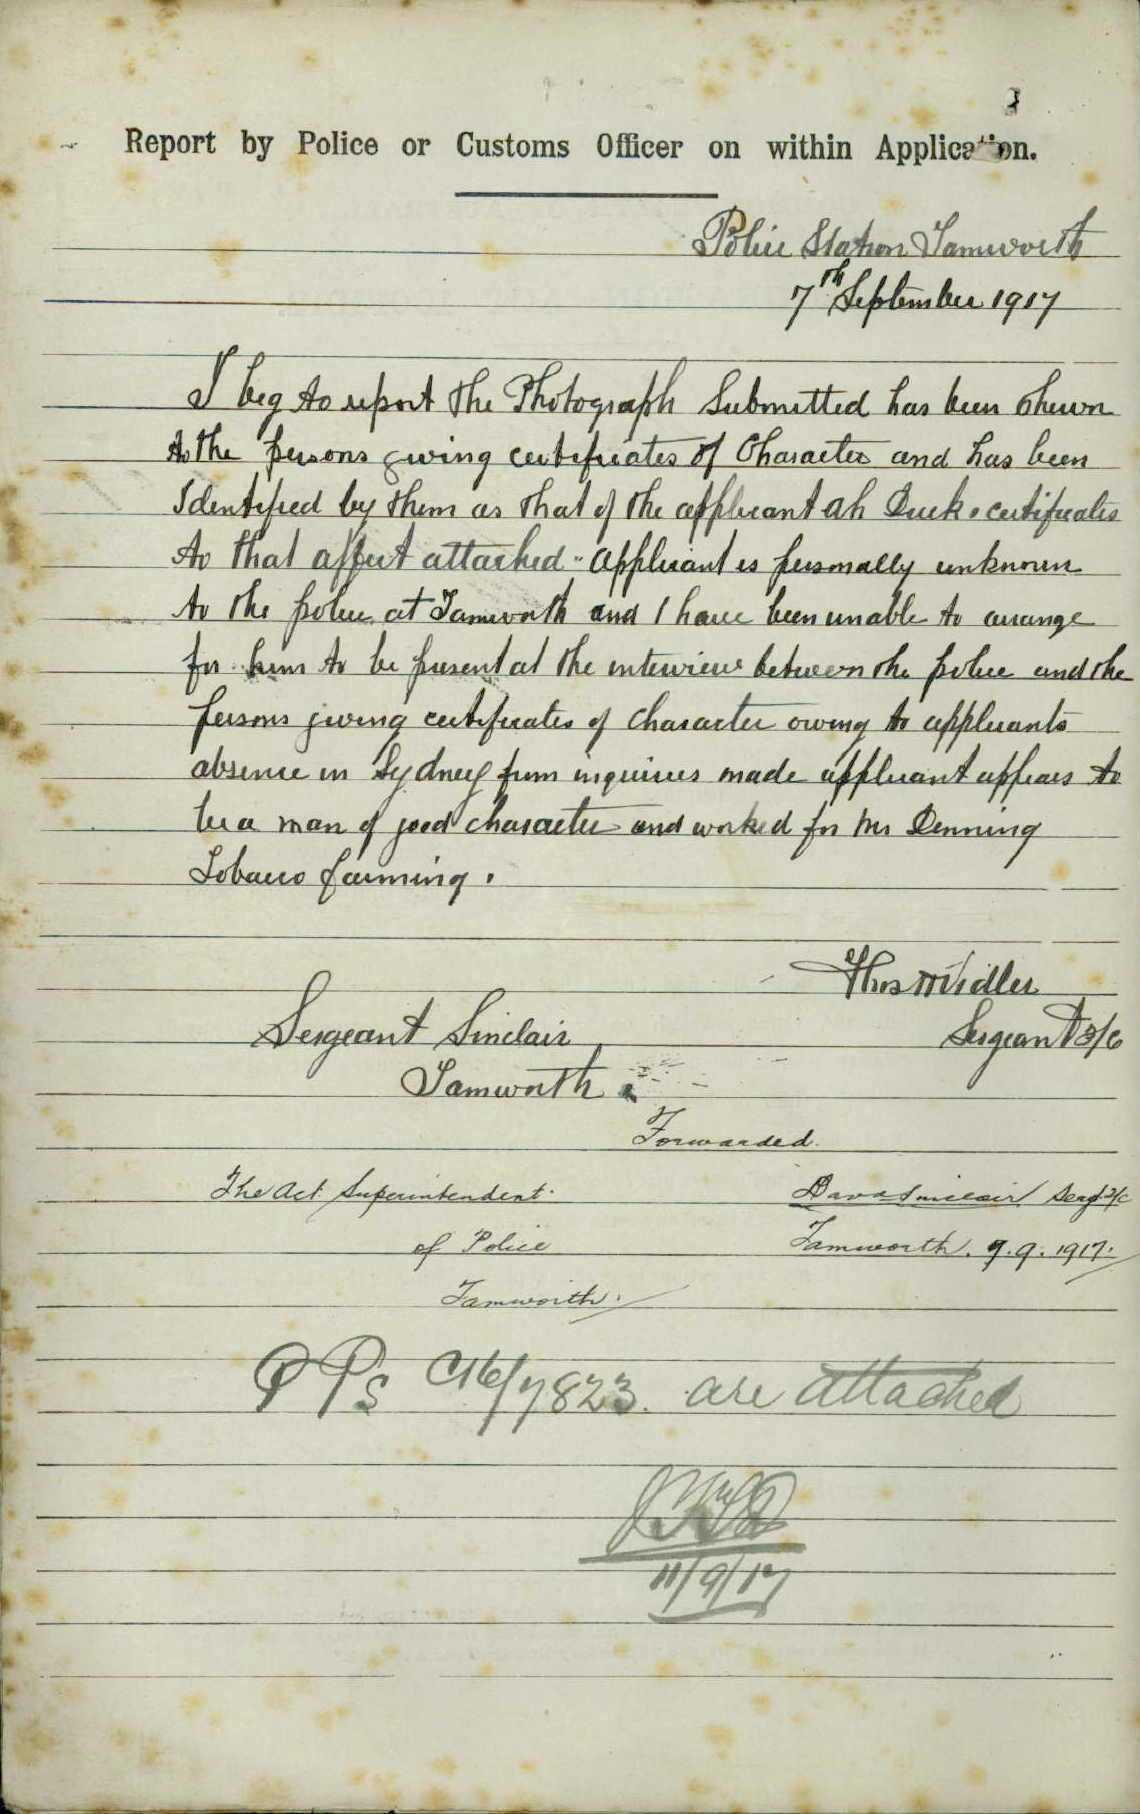 Report by Police or Customs Officer on within Application.
Police Station Tamworth
7th September 1917
I beg to report the Photograph Submitted has been shewn
to the persons giving certificates of Character and has been
Identified by them as that of the applicant Ah Duck. certificates
to that affect attached - applicant is personally unknown
to the police at Tamworth and I have been unable to arrange
for him to be present at the interview between the police and the
persons giving certificates of character owing to applicants
absence in Sydney from inquiries made applicant appears to
be a man of good character and worked for Mr Denning
Tobacco farming.
Thos
Sergeant 3/c
Sergeant Sinclair
Tamworth
Forwarded.
The Act. Superintendent.
of Police
Tamworth.
David Sinclair Sergt 2/c
Tamworth. 9.9.1917.
PPs C16/7823. are attached
11/9/17